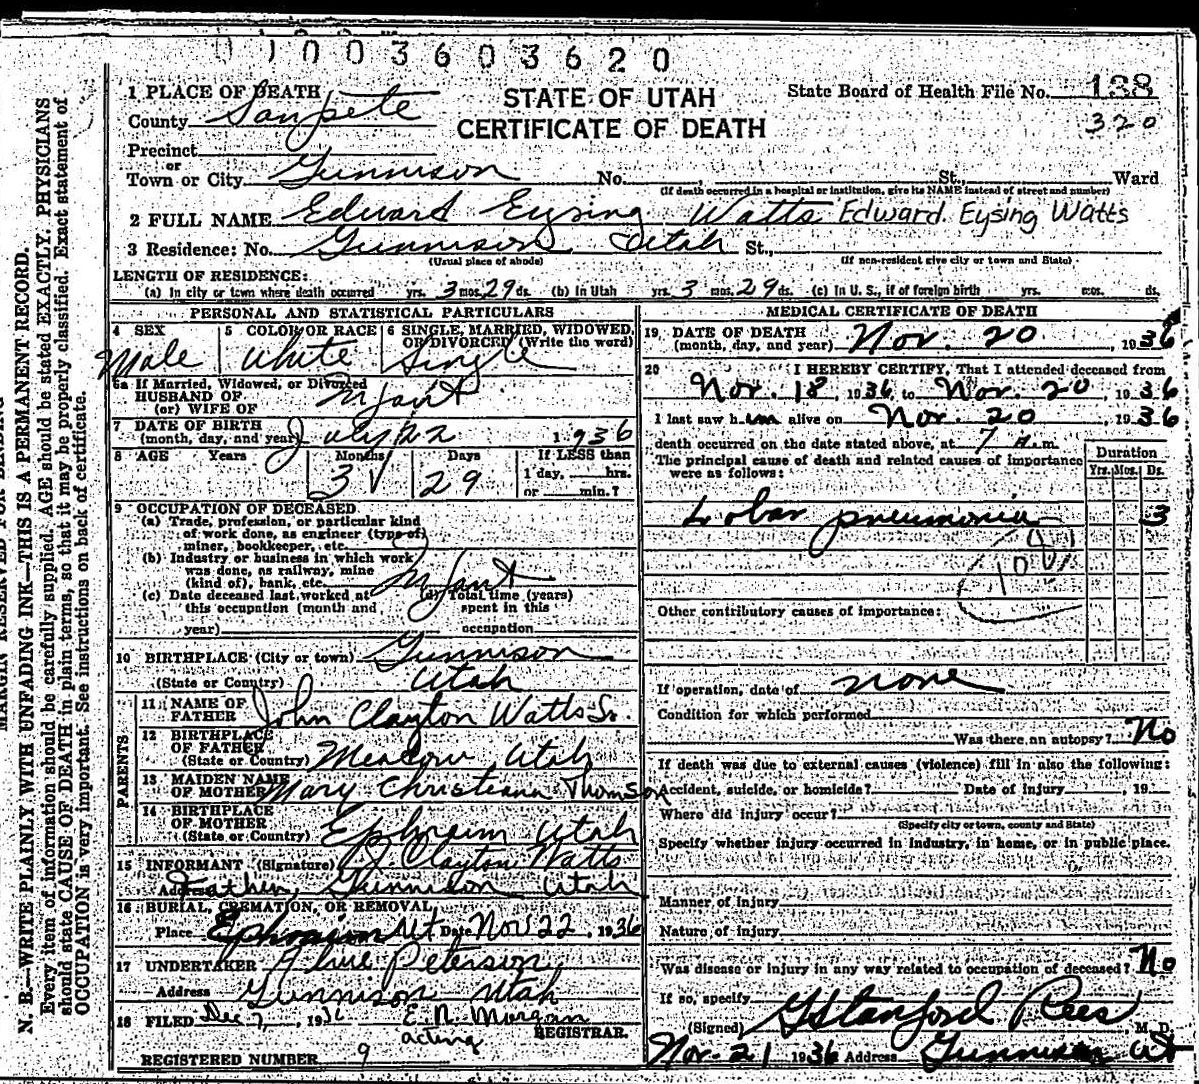 0 1 0 0 3 6 0 3 6 2 0
STATE OF UTAH
CERTIFICATE OF DEATH
State Board of Health File No. 138
320
1 PLACE OF DEATH
County Sanpete
Precinct
or
Town or City Gunnison No. , St., Ward
(If death occurred in a hospital or institution, give its NAME instead of street and number)
2 FULL NAME Edward Eysing Watts Edward Eysing Watts
3 Residence: No. Gunnison Utah St.,
(Usual place of abode) (If non-resident give city or town and State)
LENGTH OF RESIDENCE:
(a) In city or town where death occurred yrs. 3 mos. 29 ds. (b) In Utah yrs. 3 mos. 29 ds. (c) In U. S., if of foreign birth yrs. mos. ds.
PERSONAL AND STATISTICAL PARTICULARS
4 SEX 5 COLOR OR RACE 6 SINGLE, MARRIED, WIDOWED, OR DIVORCED (Write the word)
Male White Single
6a If Married, Widowed, or Divorced
HUSBAND OF
(or) WIFE OF Infant
7 DATE OF BIRTH
(month, day, and year) July 22 1936
8 AGE Years Months Days If LESS than
3 29 1 day, hrs.
or min.?
9 OCCUPATION OF DECEASED
(a) Trade, profession, or particular kind
of work done, as engineer (type of)
miner, bookkeeper, etc.
(b) Industry or business in which work
was done, as railway, mine
(kind of), bank, etc. Infant
(c) Date deceased last worked at (d) Total time (years)
this occupation (month and spent in this
year) occupation
10 BIRTHPLACE (City or town) Gunnison
(State or Country) Utah
PARENTS
11 NAME OF
FATHER John Clayton Watts Sr.
12 BIRTHPLACE
OF FATHER
(State or Country) Meadow Utah
13 MAIDEN NAME
OF MOTHER Mary Christeana Thomson
14 BIRTHPLACE
OF MOTHER
(State or Country) Ephraim Utah
15 INFORMANT (Signature) J Clayton Watts
Address Father, Gunnison Utah
16 BURIAL, CREMATION, OR REMOVAL,
Place Ephraim Ut Date Nov 22, 1936
17 UNDERTAKER Peterson
Address Gunnison Utah
18 FILED Dec 7, 1936 E. N. Morgan
acting REGISTRAR.
REGISTERED NUMBER 9
MEDICAL CERTIFICATE OF DEATH
19 DATE OF DEATH
(month, day, and year) Nov. 20, 1936
20 I HEREBY CERTIFY, That I attended deceased from
Nov. 18, 1936 to Nov. 20, 1936
I last saw him alive on Nov. 20, 1936
death occurred on the date stated above, at 7 A.m.
The principal cause of death and related causes of importance
were as follows:
Duration
Yrs. Mos. Ds.
Lobar pneumonia 3
108
Other contributory causes of importance:
If operation, date of none
Condition for which performed
Was there an autopsy? No
If death was due to external causes (violence) fill in also the following:
Accident, suicide, or homicide? Date of injury , 19
Where did injury occur?
(Specify city or town, county and State)
Specify whether injury occurred in industry, in home, or in public place.
Manner of injury
Nature of injury
Was disease or injury in any way related to occupation of deceased? No
If so, specify
(Signed) G Stanford Rees, M. D.
Nov. 21 1936 Address Gunnison Ut
N. B.—WRITE PLAINLY WITH UNFADING INK—THIS IS A PERMANENT RECORD.
Every item of information should be carefully supplied. AGE should be stated EXACTLY. PHYSICIANS
should state CAUSE OF DEATH in plain terms, so that it may be properly classified. Exact statement of
OCCUPATION is very important. See instructions on back of certificate.